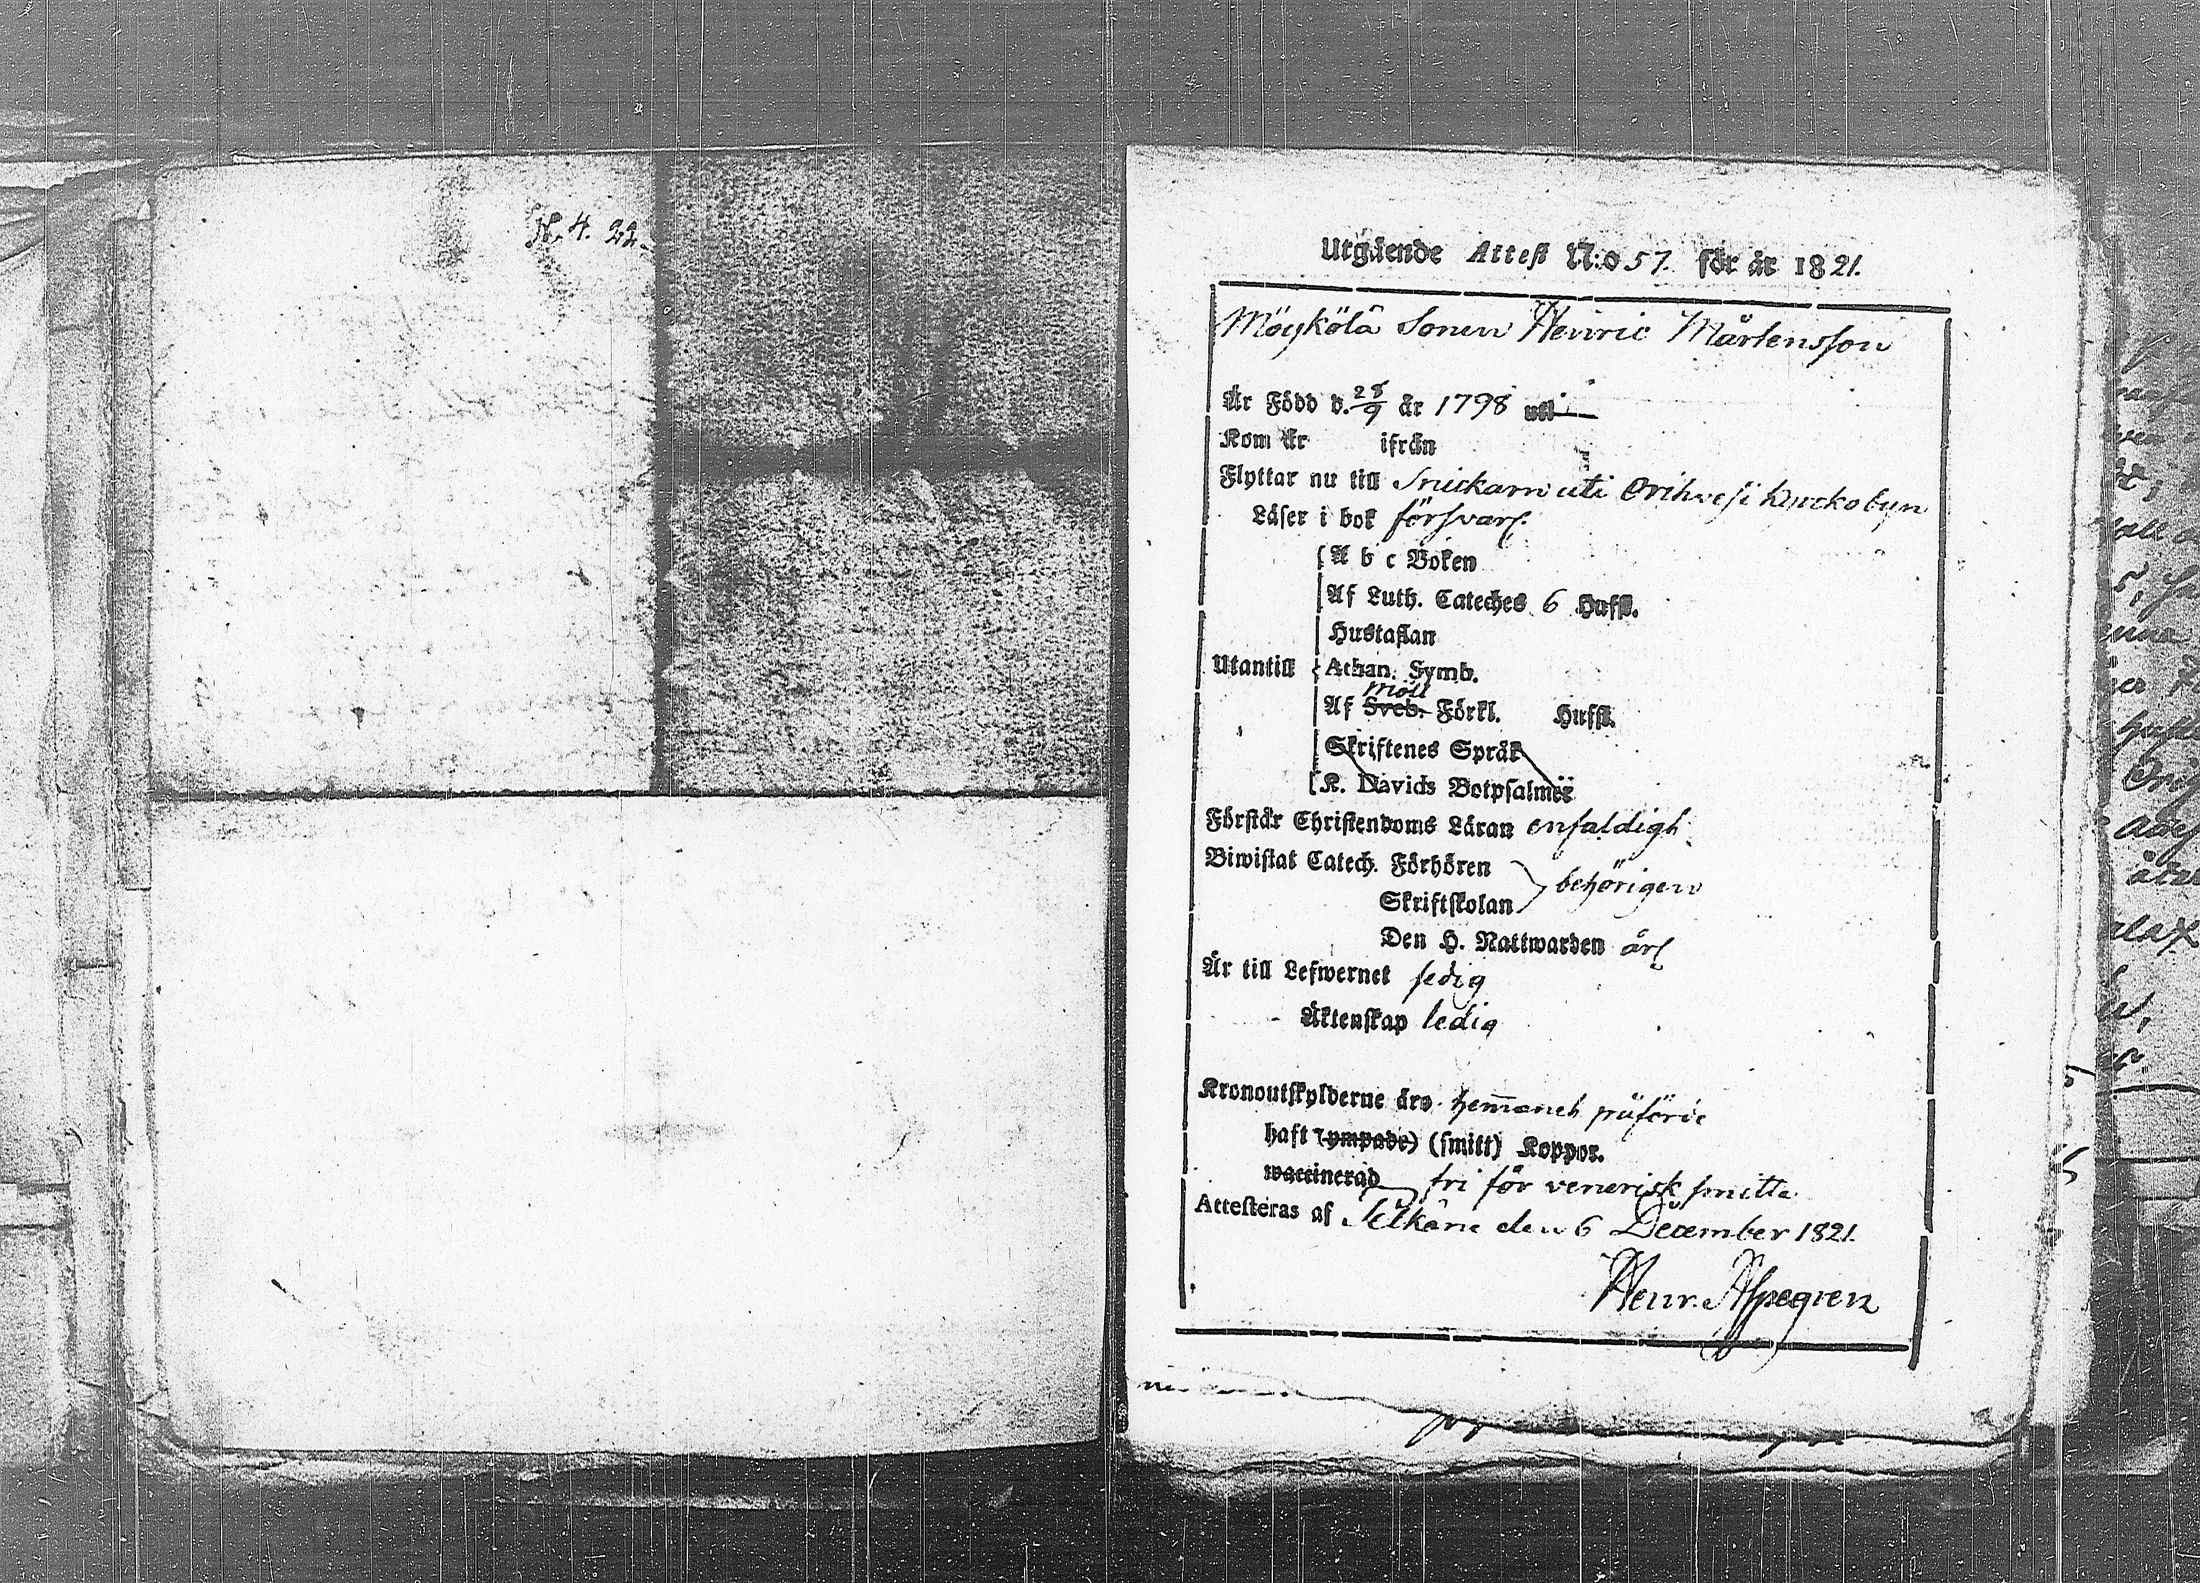 N. 4. 22.
Utgående Attest N:o 57. för år 1821.
Möykölä Sonen Henric Mårtensson
Är Född d. 28/9 år 1798 uti
Kom år ifrån
Flyttar nu till Snickarn uti Orihvesi byn
Läser i bok försvarl.
A b c Boken
Af Luth. Cateches 6 Hufst.
Hustaflan
Utantill Athan. Symb.
Möll
Af Sveb. Förkl. Hufst.
Skriftenes Språk
K. Davids Botpsalmer
Förstår Christendoms Läran enfaldigt.
Biwistat Catech. Förhören
behörigen
Skriftskolan
Den H. Nattwarden årl.
Är till Lefwernet sedig
Äktenskap ledig
Kronoutskylderne äro hem̄anet påförde
haft (ympade) (smitt) Koppor.
waccinerad fri för venerisk smitta
Attesteras af den 6 December 1821.
Henr. Aspegren